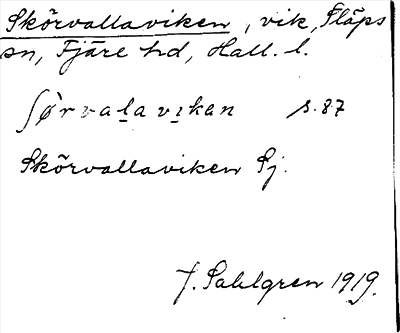 Skörvallaviken, vik, Släps
sn, Fjäre hd, Hall. l.
ʃø̀rvala vikan s. 87
Skörvallaviken Sj.
J. Sahlgren 1919.